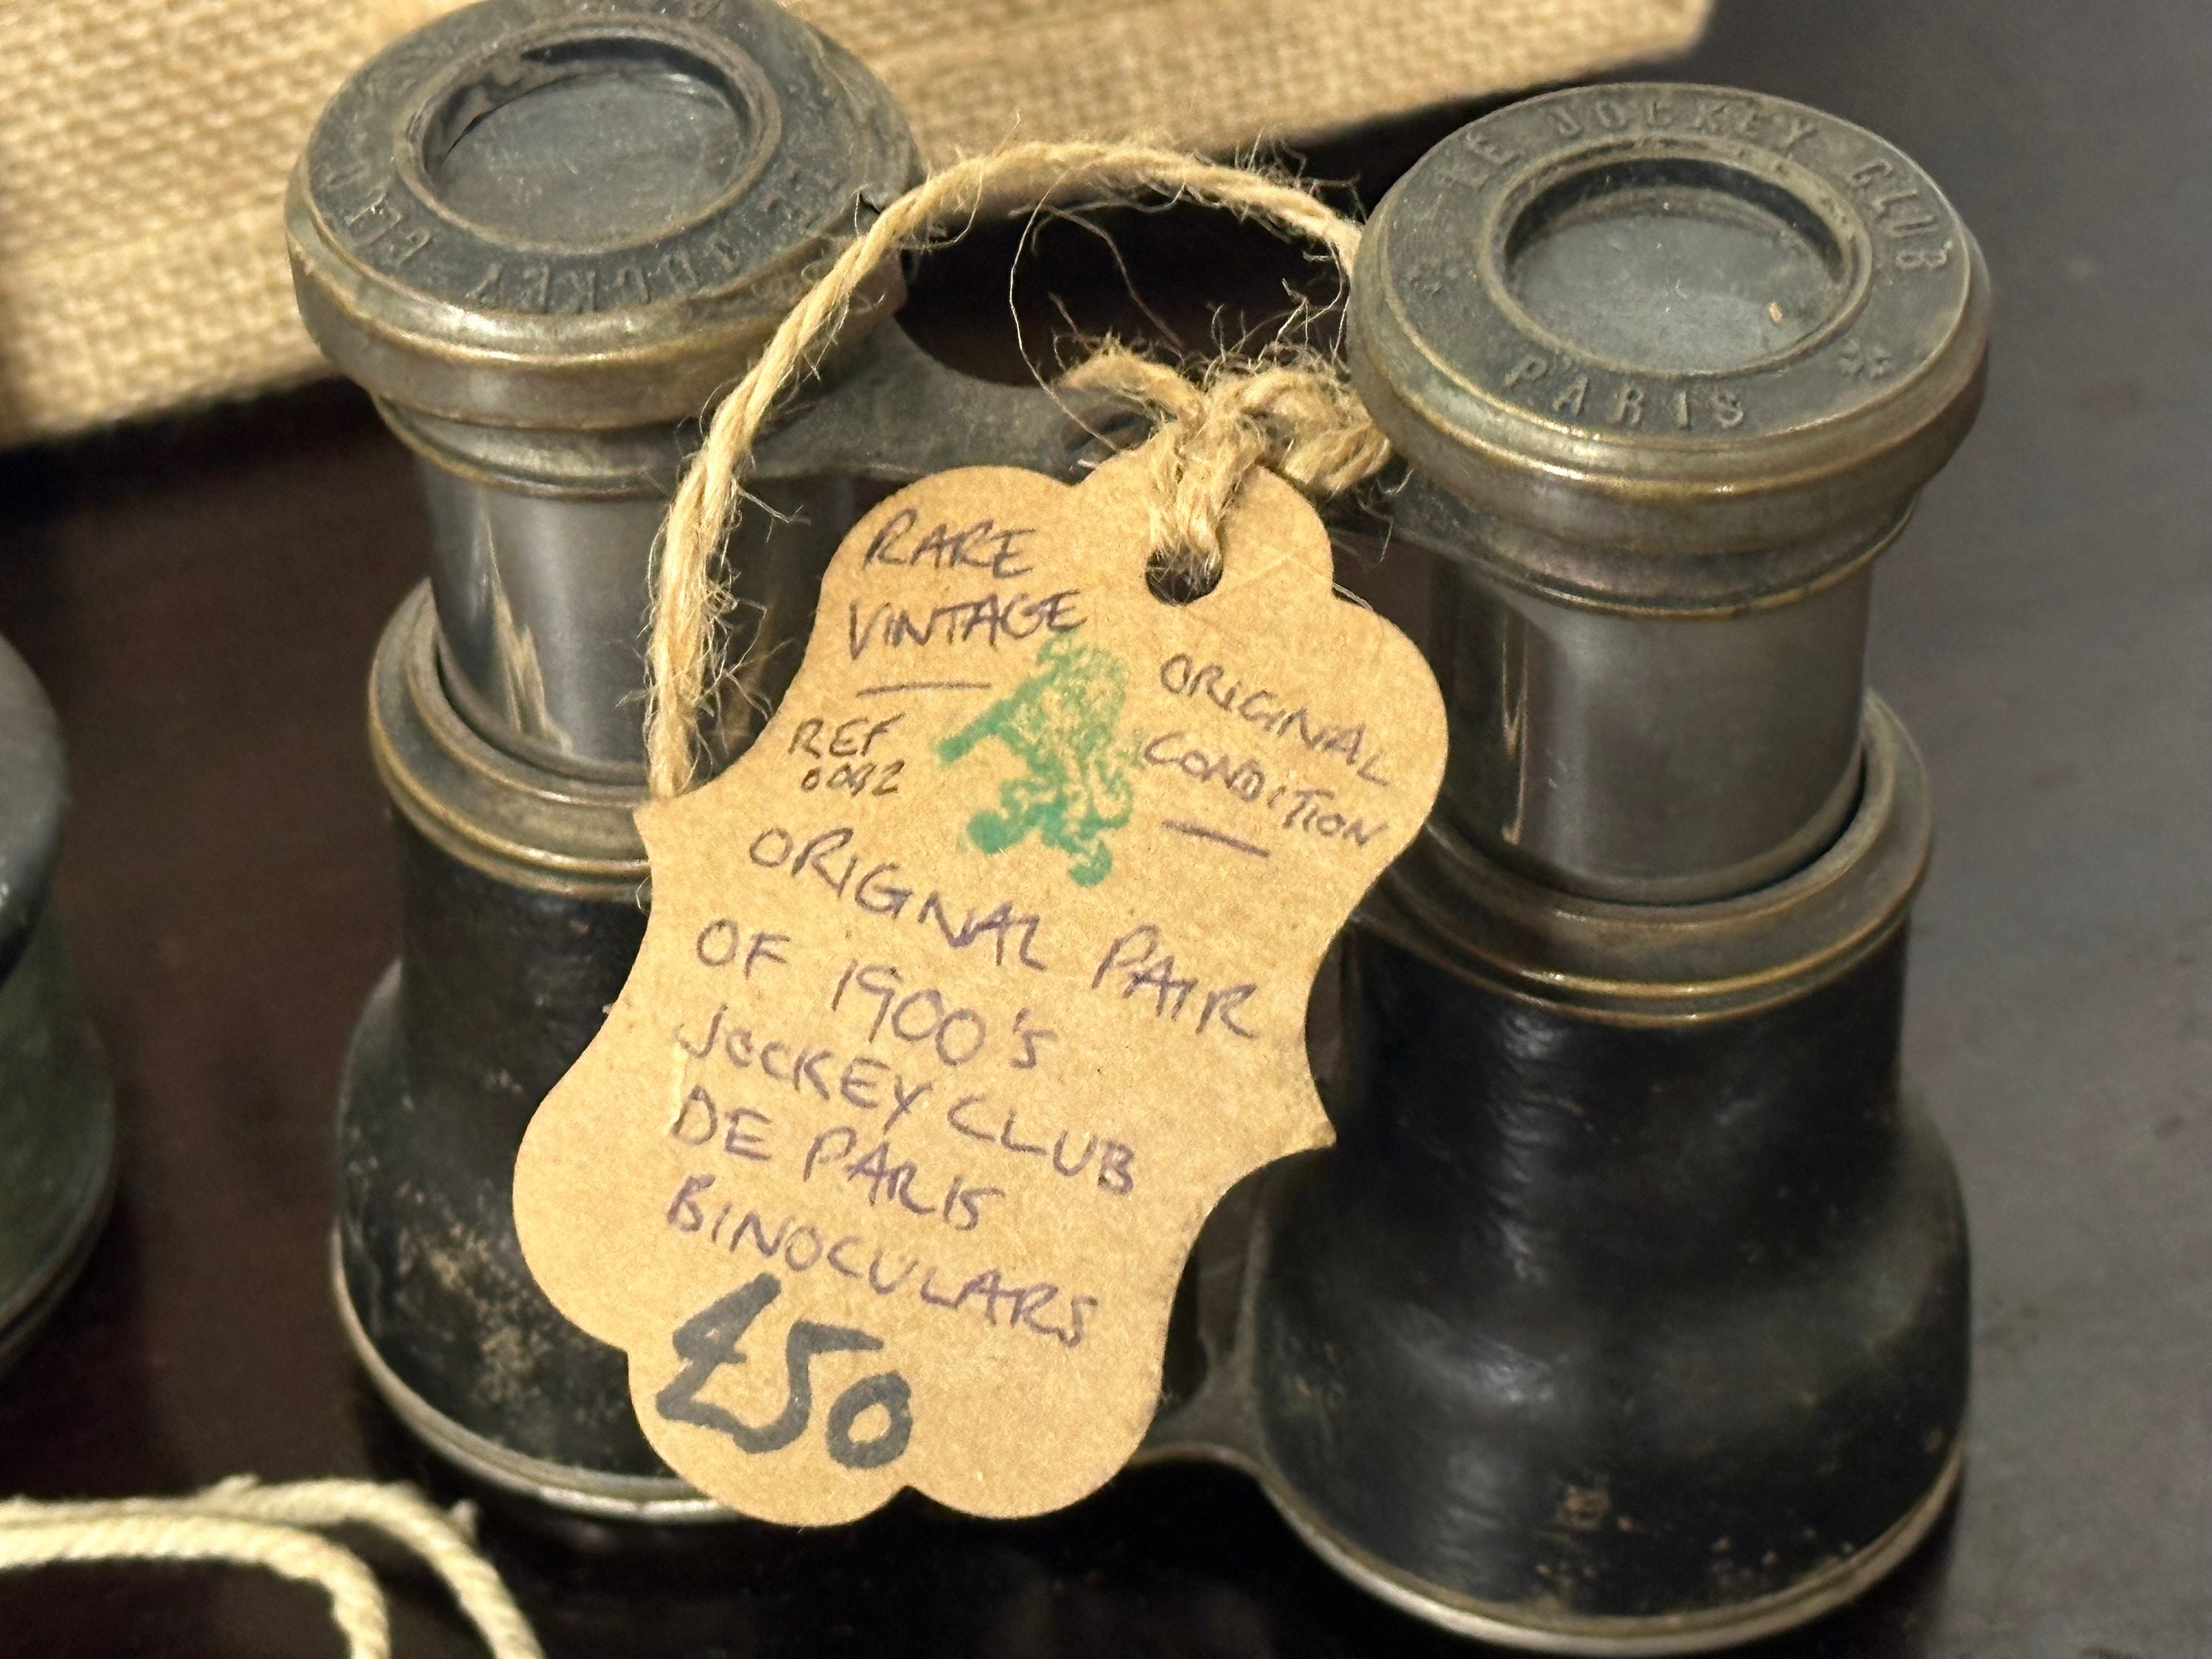 LE JOCKEY CLUB
PARIS
LE JOCKEY CLUB
RARE
VINTAGE
REF
0042
ORIGINAL
CONDITION
ORIGNAL PAIR
OF 1900's
JOCKEY CLUB
DE PARIS
BINOCULARS
£50